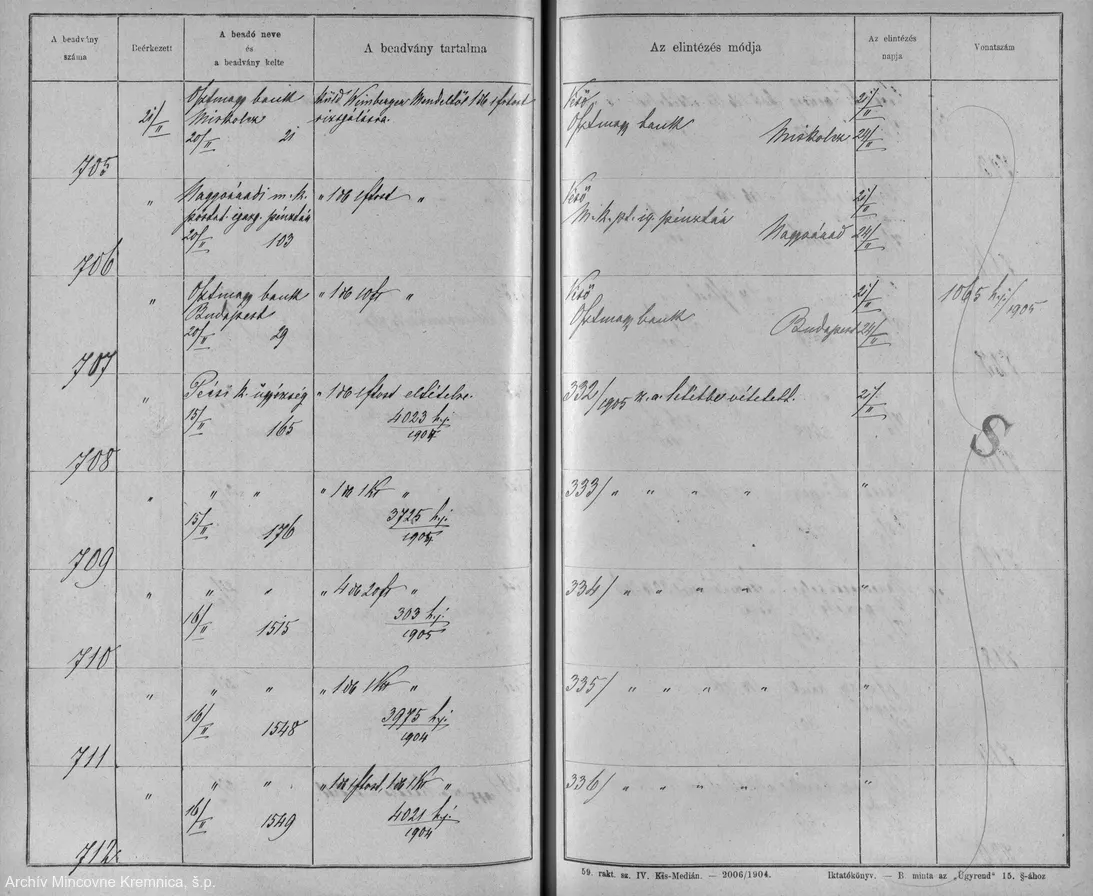 A beadvány száma
Beérkezett
A beadó neve és a beadvány kelte
A beadvány tartalma
Az elintézés módja
Az elintézés napja
Vonatszám
705
21/II
Osztmagy bank
Miskolcz
20/II 21
küld Weinberger 1 db 1 frtost
vizsgálásra.
Osztmagy bank
Miskolcz
21/II
24/II
706
"
Nagyváradi m. k.
postat. igazg. pénztár
20/II 103
" 1 db 1 frtost "
M. k. pt. ig. pénztár
Nagyvárad
21/II
24/II
707
"
Osztmagy bank
Budapest
20/II 29
" 1 db 10 fr "
Osztmagy bank
Budapest
21/II
24/II
1065 hj/1905
708
"
Pécsi k. ügyészség
15/II 165
" 1 db 1 frtost elitélve.
4023 hj./1904
332/1905 sz. a. letétbe vétetett.
21/II
709
"
" "
15/II 176
" 1 db 1 Kr "
3725 hj./1904
333/ " " " "
"
710
"
" "
16/II 1515
" 4 db 20 fr "
303 hj/1905
334/ " " " "
"
711
"
" "
16/II 1548
" 1 db 1 Kr "
3975 hj./1904
335/ " " " "
"
712
"
" "
16/II 1549
" 1 db 1 frtost, 1 db 1 Kr "
4021 hj./1904
336/ " " " "
"
S
59. rakt. sz. IV. Kis-Medián. — 2006/1904.
Iktatókönyv. — B minta az „Ügyrend" 15. §-ához
Archív Mincovne Kremnica, š.p.